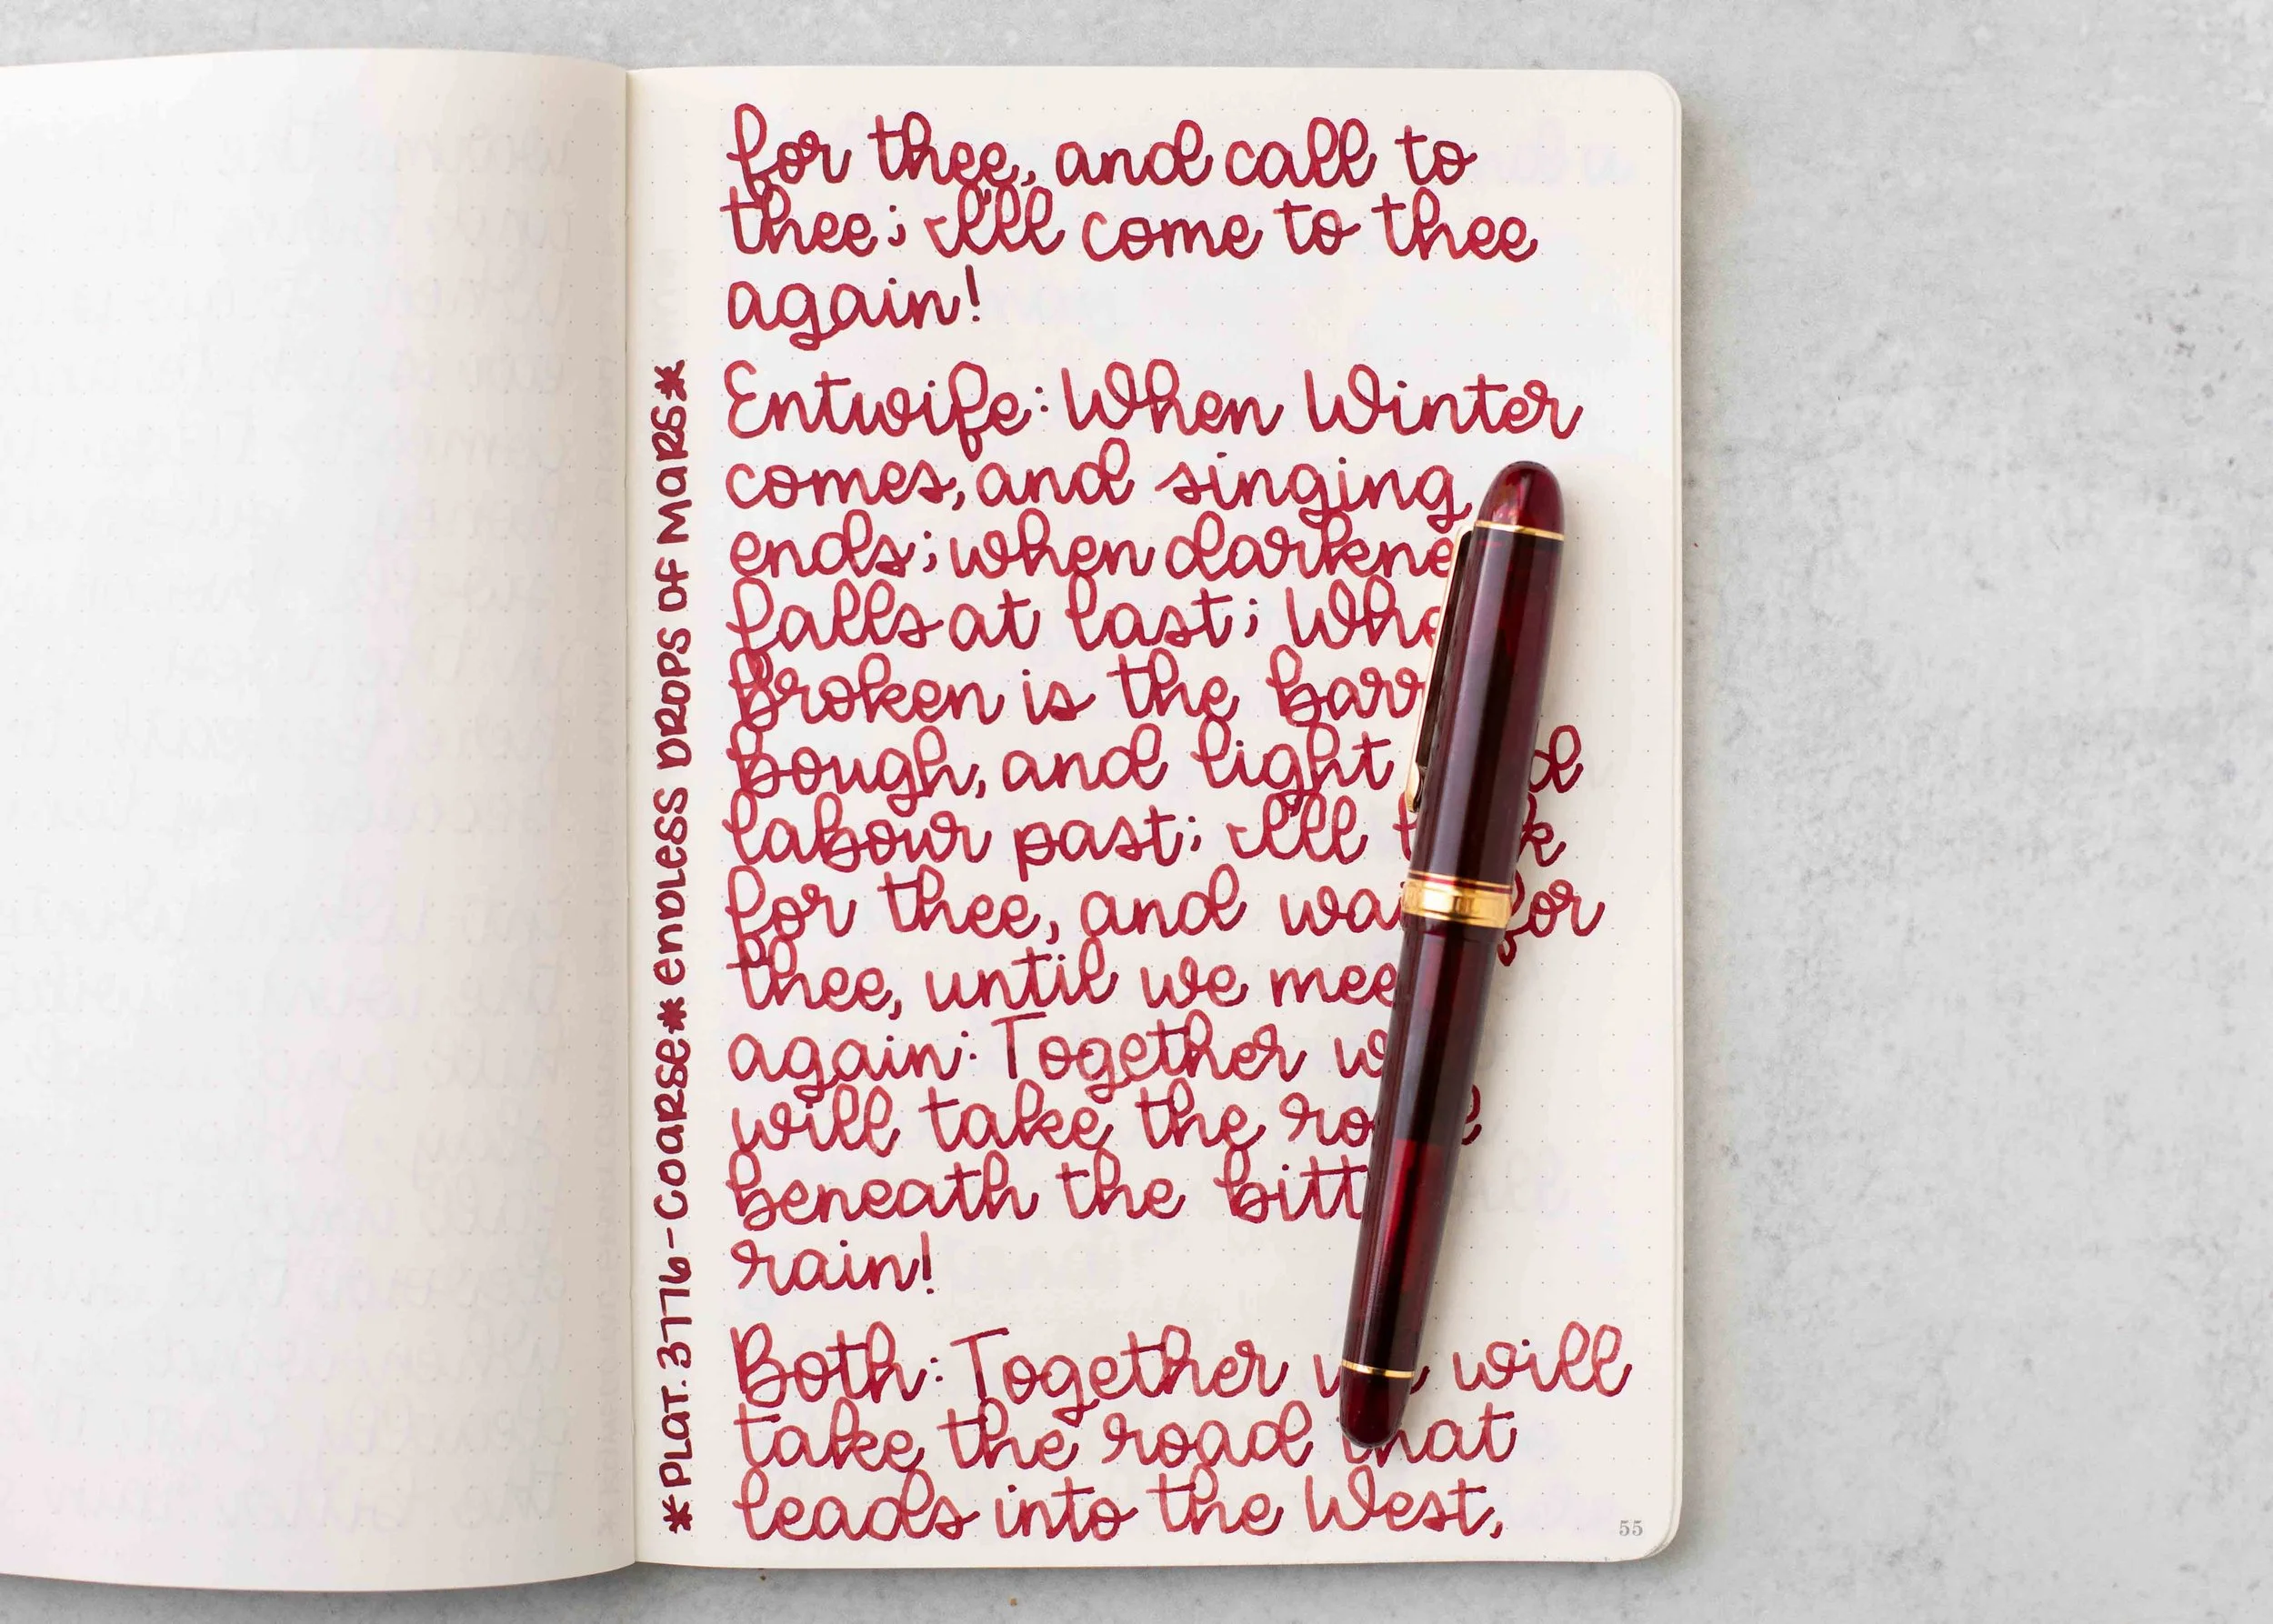 for thee, and call to
thee; I'll come to thee
again!
Entwife: When Winter
comes, and singing
ends; when darkne
falls at last; Whe
Broken is the barr
bough, and light
labour past; I'll
for thee, and wai for
thee, until we mee
again: Together w
will take the ro
beneath the bitt
rain!
Both: Together will
take the road that
leads into the West,
*PLAT. 3776-COARSE* ENDLESS DROPS OF MARS*
55